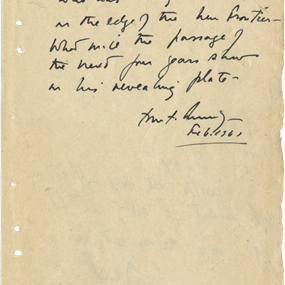 who was
on the edge of the new frontier—
What will the passage of
the next four years show
on his revealing plate—
Feb. 1961